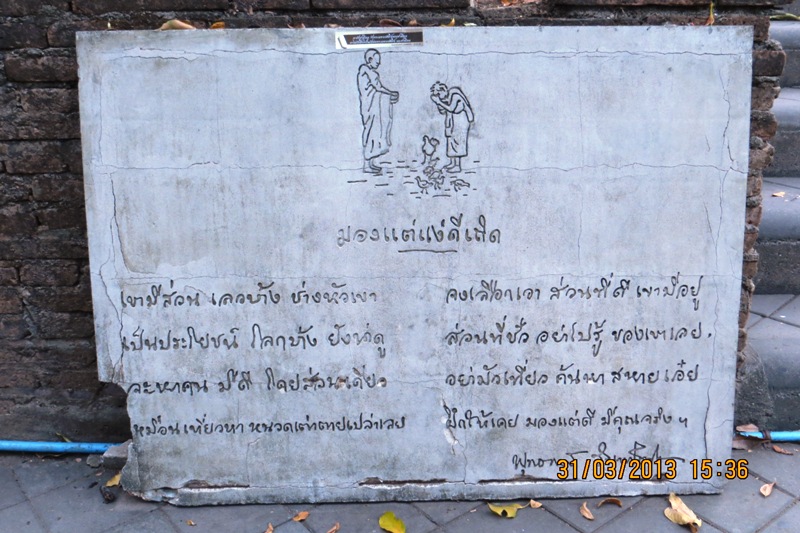 มองแต่แง่ดีเถิด
เขามีส่วน เลวบ้าง ช่างหัวเขา จงเลือกเอา ส่วนที่ดี เขามีอยู่
เป็นประโยชน์ โลกบ้าง ยังน่าดู ส่วนที่ชั่ว อย่าไปรู้ ของเขาเลย.
จะหาคน มีดี โดยส่วนเดียว อย่ามัวเที่ยว ค้นหา สหายเอ๋ย
เหมือนเที่ยวหา หนวดเต่าตายเปล่าเลย ฝึกให้เคย มองแต่ดี มีคุณจริง ฯ
31/03/2013 15:36